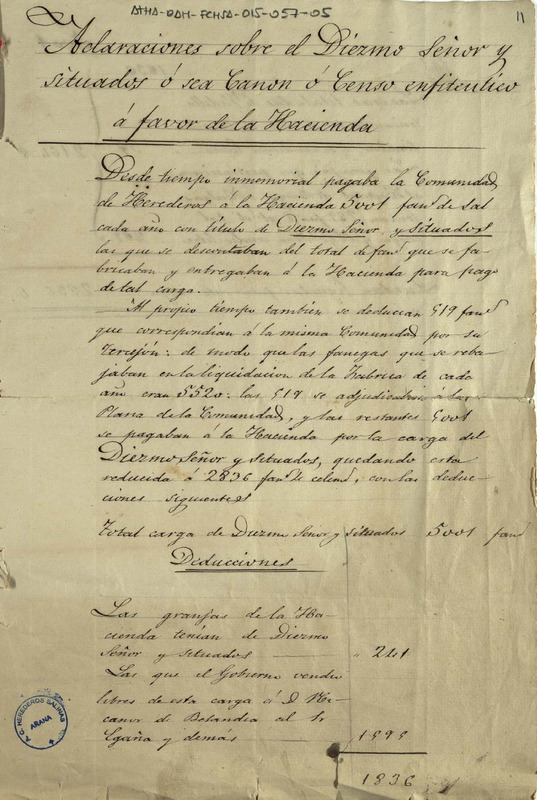 ATHA-DAH-FCHSA-015-057-05
11
Aclaraciones sobre el Diezmo Señor y
situados ó sea Canon ó Censo enfiteutico
á favor de la Hacienda
Desde tiempo inmemorial pagaba la Comunidad
de Herederos á la Hacienda 5001 fans de sal
cada año con título de Diezmo Señor y situados
las que se descontaban del total de fans que se fa-
bricaban y entregaban á la Hacienda para pago
de tal carga.
Al propio tiempo tambien se deducian 519 fans
que correspondian á la misma Comunidad por su
Tercejón: de modo que las fanegas que se reba-
jaban en la liquidacion de la Fabrica de cada
año eran 5520: las 519 se adjudicaban á la
Plana de la Comunidad, y las restantes 5001
se pagaban á la Hacienda por la carga del
Diezmo Señor y situados, quedando esta
reducida á 2836 fans celems, con las deduc-
ciones siguientes
Total carga de Diezmo Señor y situados 5001 fans
Deducciones
Las granjas de la Ha-
cienda tenían de Diezmo
Señor y situados 241
Las que el Gobierno vendió
libres de esta carga á D. Ni-
canor de Belandia al Sr.
Egaña y demás 1595
1836
A.C. HEREDEROS SALINAS
ARANA